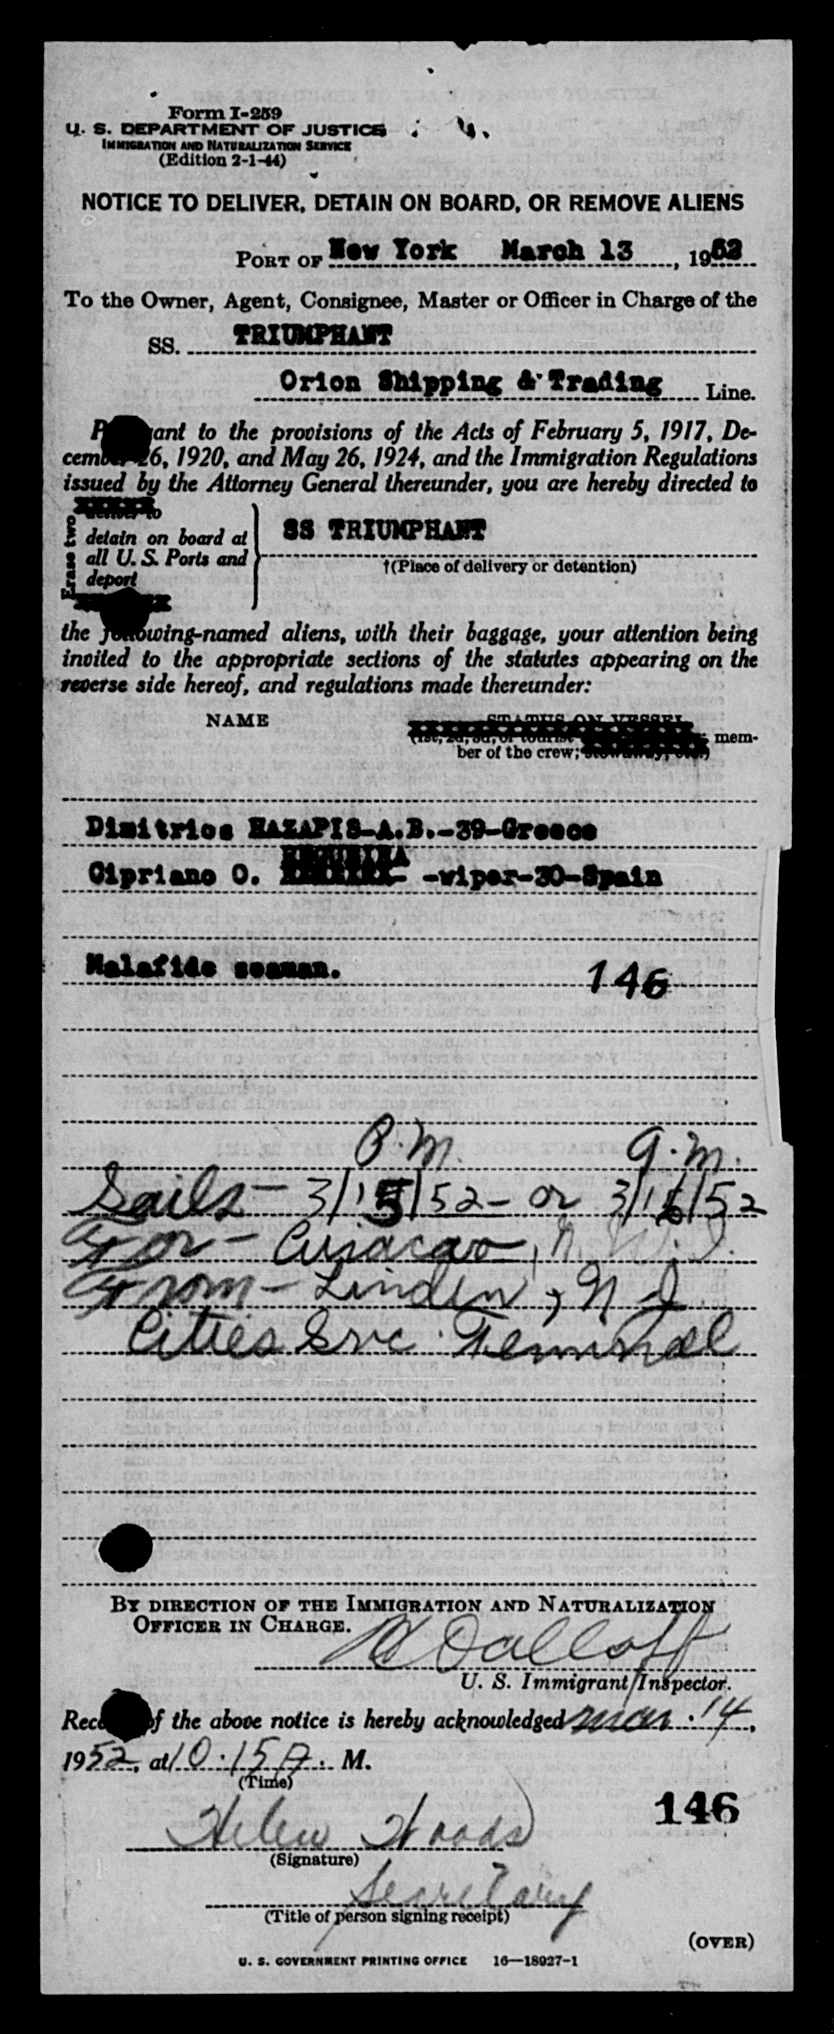 Form I-259
U. S. DEPARTMENT OF JUSTICE
IMMIGRATION AND NATURALIZATION SERVICE
(Edition 2-1-44)
NOTICE TO DELIVER, DETAIN ON BOARD, OR REMOVE ALIENS
PORT OF New York March 13, 1952
To the Owner, Agent, Consignee, Master or Officer in Charge of the
SS. TRIUMPHANT
Orion Shipping & Trading Line.
ant to the provisions of the Acts of February 5, 1917, De-
cember 26, 1920, and May 26, 1924, and the Immigration Regulations
issued by the Attorney General thereunder, you are hereby directed to
Erase two
detain on board at
all U. S. Ports and
deport
SS TRIUMPHANT
†(Place of delivery or detention)
the following-named aliens, with their baggage, your attention being
invited to the appropriate sections of the statutes appearing on the
reverse side hereof, and regulations made thereunder:
NAME
STATUS ON VESSEL
(1st, 2d, 3d, or tourist mem-
ber of the crew; stowaway, etc.)
Dimitrios HAZAPIS-A.B.-39-Greece
Cipriano O. -wiper-30-Spain
Malafide seaman.
146
P.M. a.m.
Sails - 3/15/52 - or 3/16/52
For - Curacao, N.W.I.
From - Linden, N.J.
Cities Svc. Terminal
BY DIRECTION OF THE IMMIGRATION AND NATURALIZATION
OFFICER IN CHARGE.
U. S. Immigrant Inspector.
of the above notice is hereby acknowledged Mar. 14,
1952, at 10:15 A. M.
(Time)
Helen Woods
(Signature)
146
Secretary
(Title of person signing receipt)
(OVER)
U. S. GOVERNMENT PRINTING OFFICE 16—18927-1